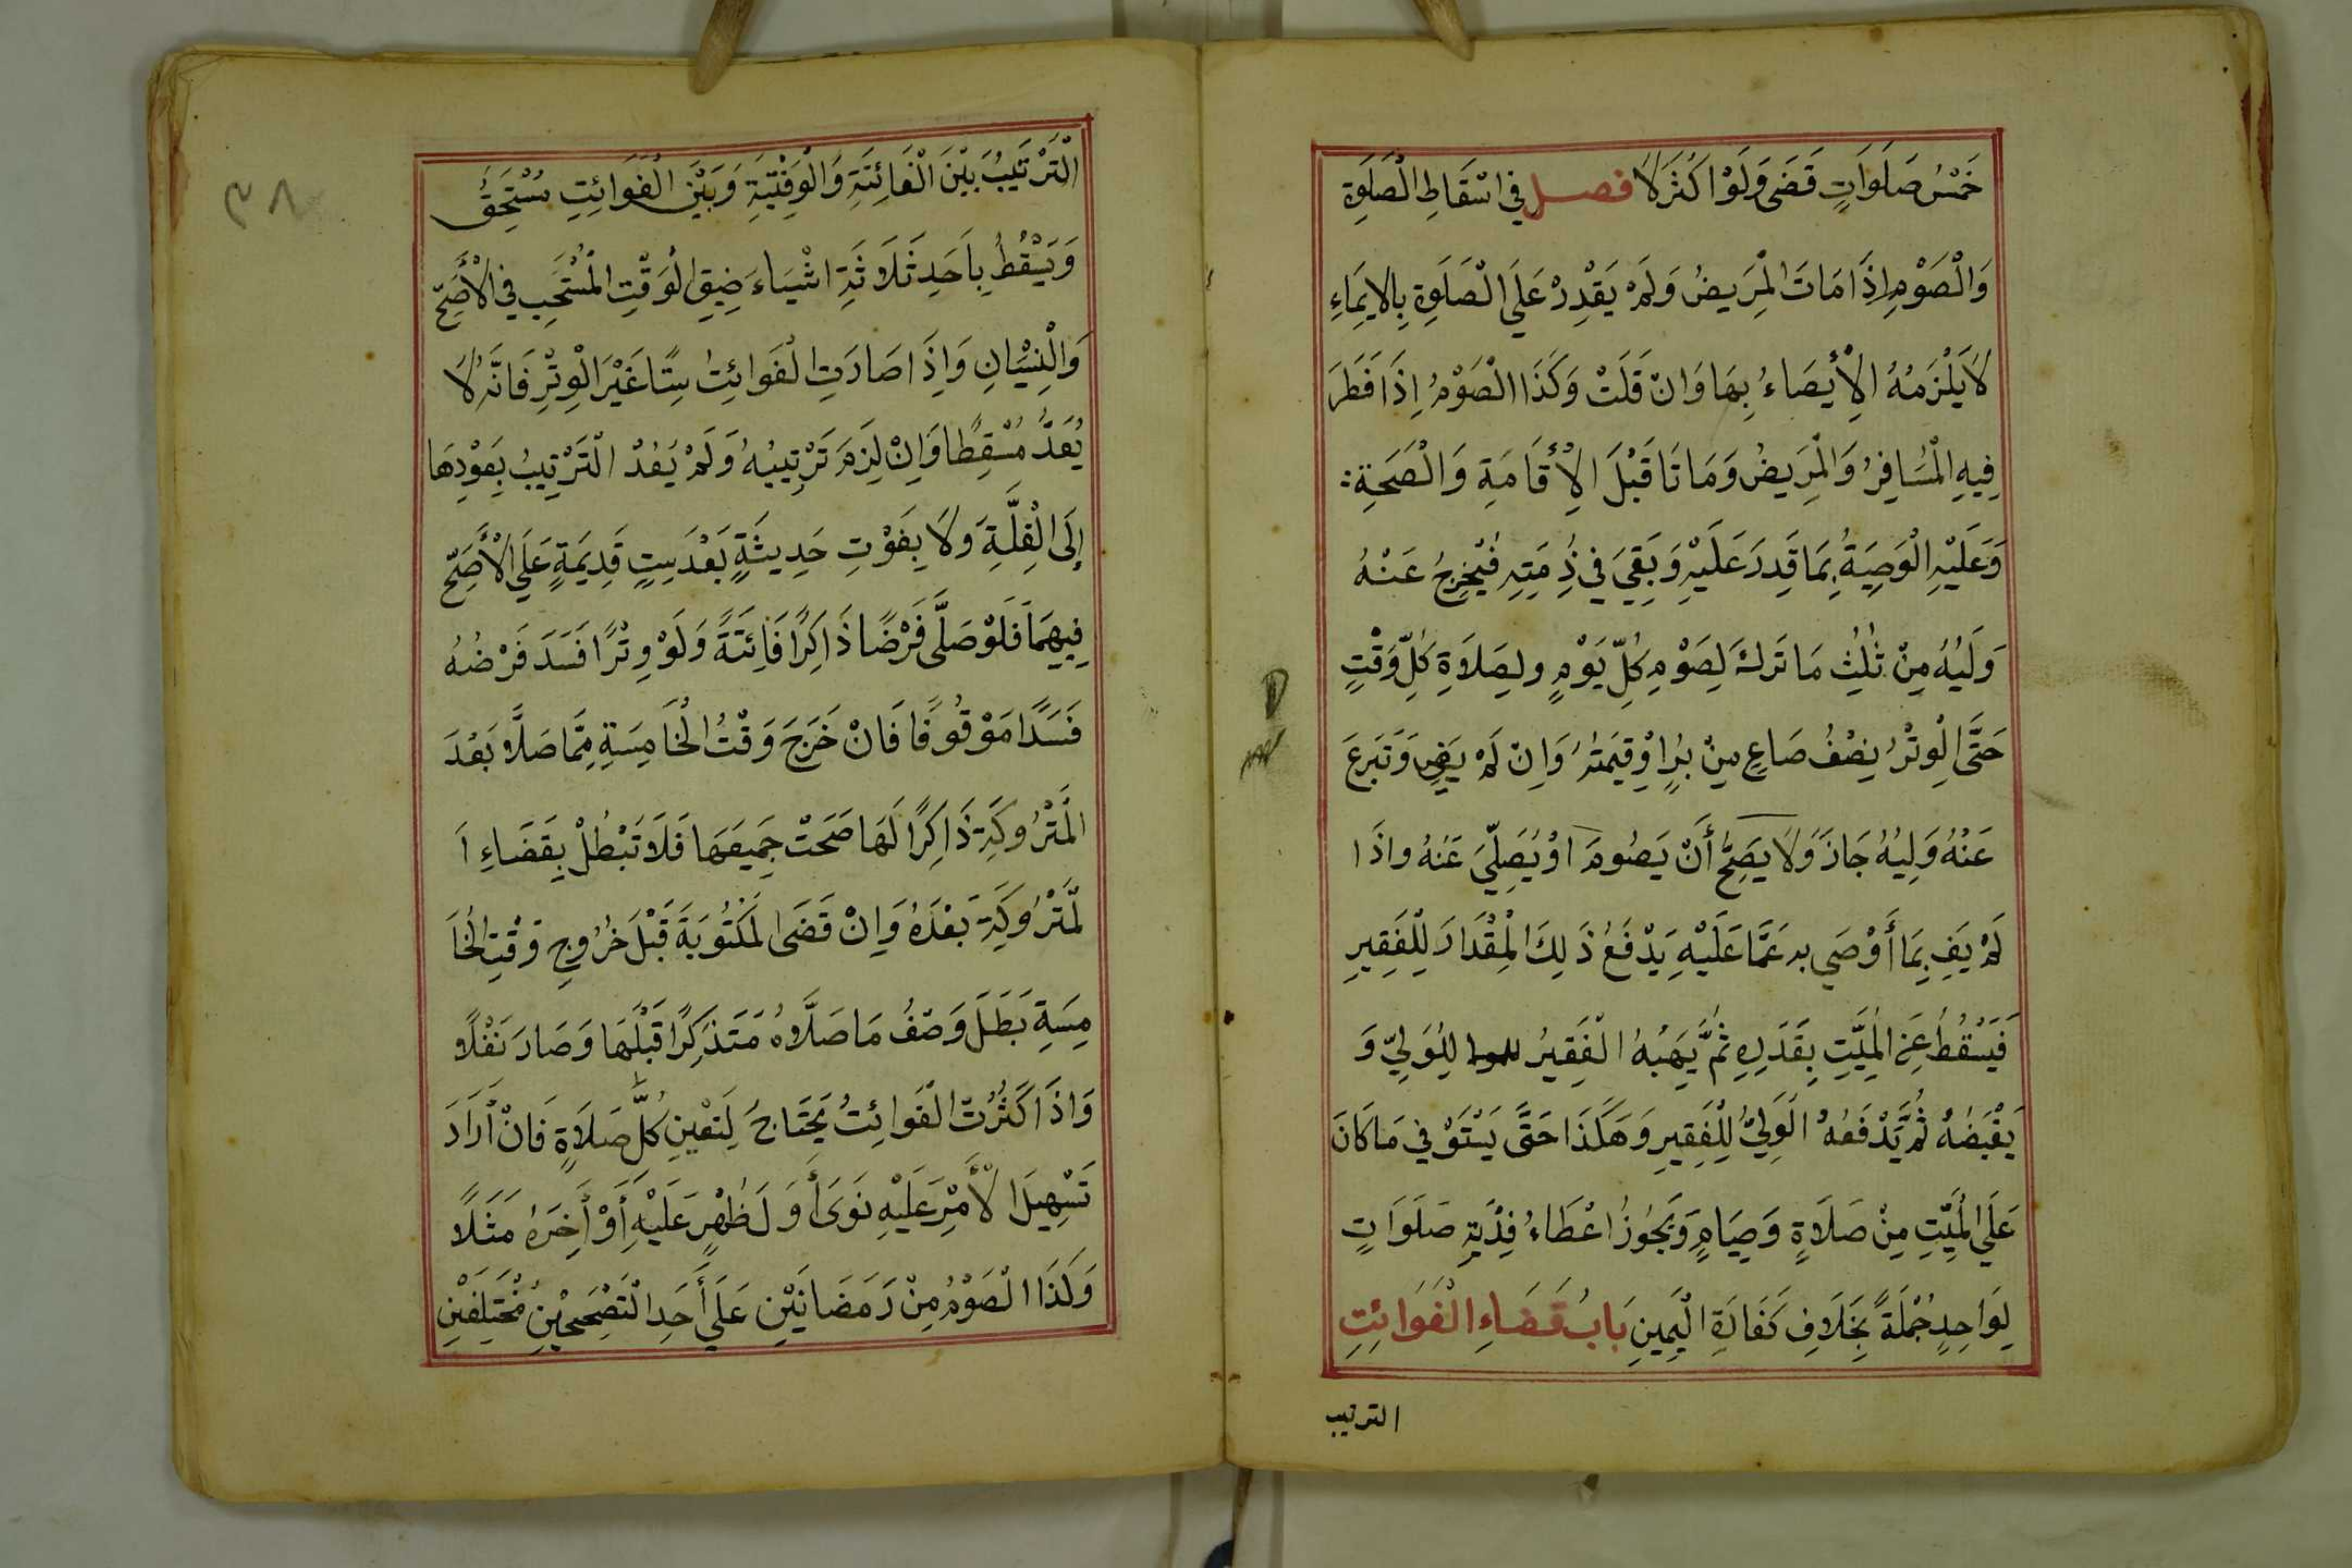 خَمْسُ صَلَوَاتٍ قَضَى وَلَوْ اَكْثَرَ لَا فصل في اسْقَاطِ الْصَلَوةِ
وَالْصَوْمِ اِذَا مَاتَ الْمَرِيضُ وَلَمْ يَقْدِرْ عَلَى الْصَلَوةِ بِالايِمَاءِ
لَا يَلْزَمُهُ الْأِيْصَاءُ بِهَا وَانْ قَلَتْ وَكَذَا الْصَوْمُ اِذَا فَطَرَ
فِيهِ الْمُسَافِرُ وَالْمَرِيضُ وَمَاتَا قَبْلَ الْأِقَامَةِ وَالْصَحَةِ :
وَعَلَيْهِ الْوَصِيَةُ بِمَا قَدِرَ عَلَيْهِ وَبَقِيَ في ذِمَتِهِ فَيُخْرِجُ عَنْهُ
وَلَيُهُ مِنْ ثُلُثِ مَا تَرَكَ لِصَوْمِ كُلِّ يَوْمٍ ولِصَلَاةِ كُلِّ وَقْتٍ
حَتَّى الْوِتْرُ نِصْفُ صَاعٍ مِنْ بُرٍ اوْ قِيَمَتُهُ وَاِنْ لَمْ يَوِضِ وَتَبَرعَ
عَنْهُ وَلِيُهُ جَازَ وَلَا يَصِحُّ أَنْ يَصُومَ اوْ يُصَلِّيَ عَنْهُ واذَا
لَمْ يَفِ بِمَا أَوْصَي به عَمَّا عَلَيْهِ يَدْفَعُ ذَلِكَ الْمِقْدَارَ لِلْفَقِيرِ
فَيَسْقُطُ عَنِ الْمَيِّتِ بِقَدَرِهِ ثُمَّ يَهَبُهُ الْفَقِيرُ لِلْوَلِيّ وَ
يَقْبَضُهُ ثُمَّ يَدْفَعُهُ الْوَلِيُّ لِلْفَقِيرِ وَهَكَذَا حَتَّى يَسْتَوْفي مَا كَانَ
عَلَي الْمَيِّتِ مِنْ صَلَاةٍ وَصِيَامٍ وَيَجُوزُ اعْطَاءُ فِدْيَةِ صَلَوَاتٍ
لِوَاحِدٍ جُمْلَةً بِخَلَافِ كَفَارَةِ الْيَمِينِ بَابُ قَضَاءِ الْفَوَائِتِ
الترتيب
٣٨
الْتَرْتَيبُ بَيْنَ الْفَائِتَةِ وَالْوَقْتِيَّةِ وَبَيْنَ الْفَوَائِتِ مُسْتَحِقُّ
وَيَسْقُطُ بِاَحَدِ ثَلَاثَةِ اشْيَاءَ ضِيقِ الْوَقْتِ الْمُسْتَحَبِ في الْأَصَحِّ
وَالْنِسْيَانِ وَاِذَا صَارَتِ الْفَوَائِتُ سِتًّا غَيْرَ الْوِتْرِ فَانَّهُ لَا
يُعَدُّ مُسْقِطًا وَاِنْ لَزِمَ تَرْتِيبُهُ وَلَمْ يَعُدْ الْتَرْتِيبُ بِعَوْدِهَا
اِلَى الْقِلَّةِ وَلَا بِفَوْتِ حَدِيثَةٍ بَعْدَ سِتٍ قَدِيمَةٍ عَلَي الْأَصَحِّ
فِيهِمَا فَلَوْ صَلَّى فَرْضًا ذَاكِرًا فَائِتَةً وَلَوْ وِتْرًا فَسَدَ فَرْضُهُ
فَسَدًا مَوْقُوفًا فَانْ خَرَجَ وَقْتُ الْخَامِسَةِ مِمَّا صَلَّا بَعْدَ
الْمَتْرُوكَةِ ذَاكِرًا لَهَا صَحَتْ جَمِيعَهَا فَلَا تَبْطُلْ بِقَضَاءِ ا
لْمَتْرُوكَةِ بَعْدَهُ وَاِنْ قَضَى الْمَكْتُوبَةَ قَبْلَ خُرُوجِ وَقْتِ الْخَا
مِسَةِ بَطَلَ وَصْفُ مَا صَلَّاهُ مَتَذَكِرًا قَبْلَهَا وَصَارَ نَفْلًا
وَاذَا كَثُرَتْ الْفَوَائِتُ يَحْتَاجُ لِتَعْيِنِ كُلِّ صَلَاةٍ فَانْ أَرَادَ
تَسْهِيلَ الْأَمْرِ عَلَيْهِ نَوَى أَوَلَ ظُهْرٍ عَلَيْهِ أَوْ أَخِرَهُ مَثَلًا
وَكَذَا الْصَوْمُ مِنْ رَمَضَانَيْنِ عَلَي أَحَدِ الْتَصْحَيحَيْنِ مُخْتَلِفَيْنِ